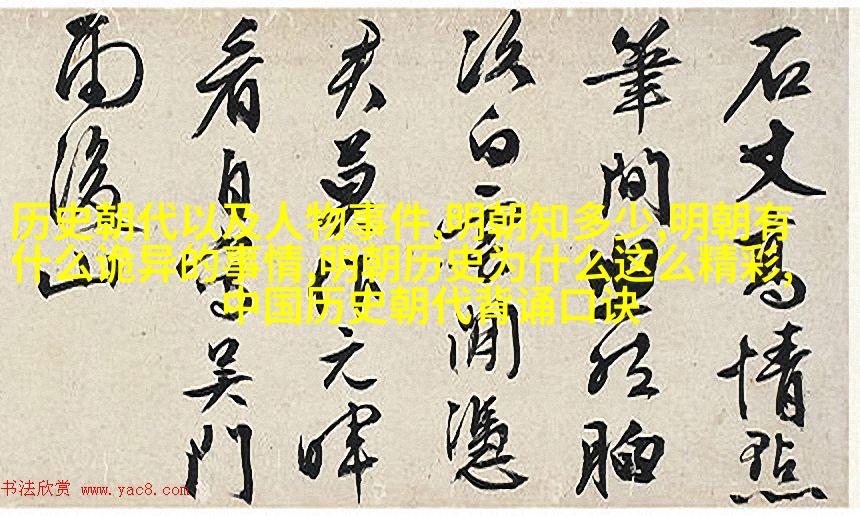 石丈高情點
筆間胸
次白雲閒憑
君作元暉
看自吳門
雨後山
历史朝代以及人物事件,明朝知多少,明朝有
什么诡异的事情,明朝历史为什么这么精彩,
中国历史朝代背诵口诀
书法欣赏 www.yac8.com